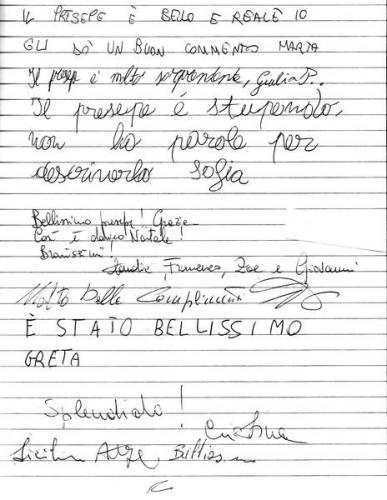 IL PRESEPE È BELLO E REALE IO
GLI DÒ UN BUON COMMENTO MARTA
Il presepe è molto sorprendente, Giulia P..
Il presepe è stupendo,
non ho parole per
descriverlo Sofia
Bellissimo presepe! Grazie
Così è davvero Natale!
Bravissimi!
Claudia, Francesco, Zoe e Giovanni
Molto bello Complimenti
È STATO BELLISSIMO
GRETA
Splendido!
Cristina